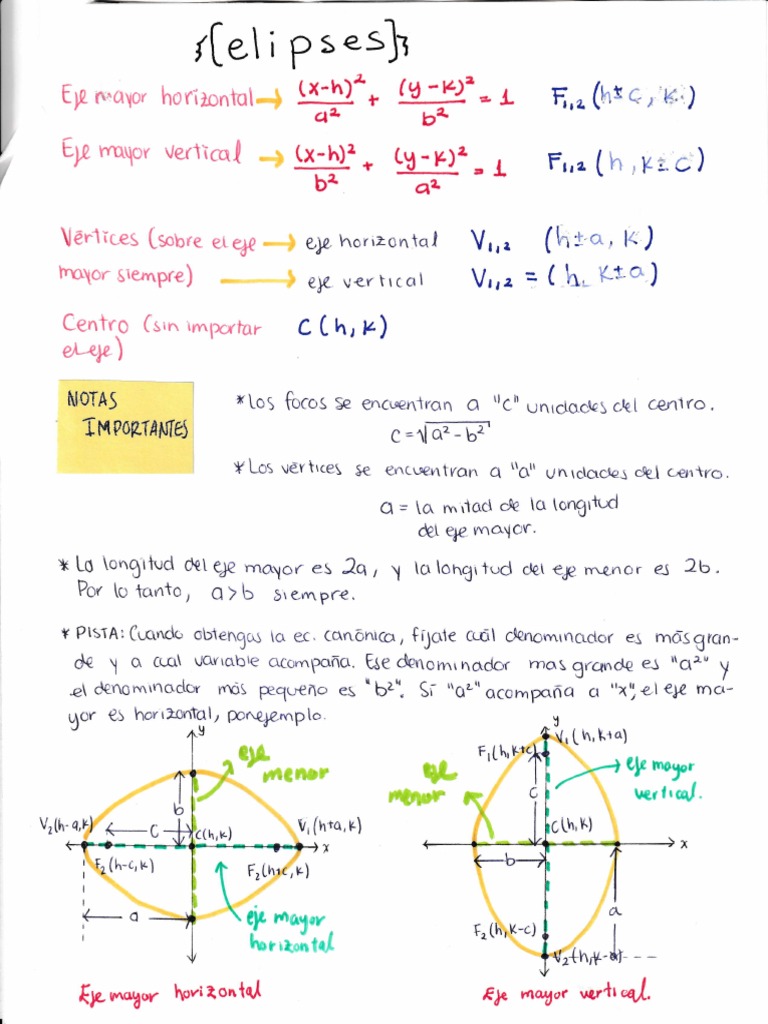 {[elipses]}
Eje mayor horizontal → (x-h)²/a² + (y-k)²/b² = 1 F₁,₂ (h±c, k)
Eje mayor vertical → (x-h)²/b² + (y-k)²/a² = 1 F₁,₂ (h, k±c)
Vértices (sobre el eje → eje horizontal V₁,₂ (h±a, k)
mayor siempre) → eje vertical V₁,₂ = (h, k±a)
Centro (sin importar C(h,k)
el eje)
NOTAS
IMPORTANTES
*Los focos se encuentran a "c" unidades del centro.
c=√a²-b²
*Los vértices se encuentran a "a" unidades del centro.
a = la mitad de la longitud
del eje mayor.
* La longitud del eje mayor es 2a, y la longitud del eje menor es 2b.
Por lo tanto, a>b siempre.
* PISTA: Cuando obtengas la ec. canónica, fíjate cuál denominador es más gran-
de y a cual variable acompaña. Ese denominador mas grande es "a²" y
el denominador más pequeño es "b²". Si "a²" acompaña a "x", el eje ma-
yor es horizontal, por ejemplo.
y
eje
menor
b
V₂(h-a,k)
c
C(h,k)
V₁(h+a,k)
x
F₂(h-c,k)
F₂(h+c,k)
a
eje mayor
horizontal
Eje mayor horizontal
y
V₁(h,k+a)
F₁(h,k+c)
eje mayor
vertical.
eje
menor
c
C(h,k)
x
b
a
F₂(h,k-c)
V₂(h,k-a)
Eje mayor vertical.